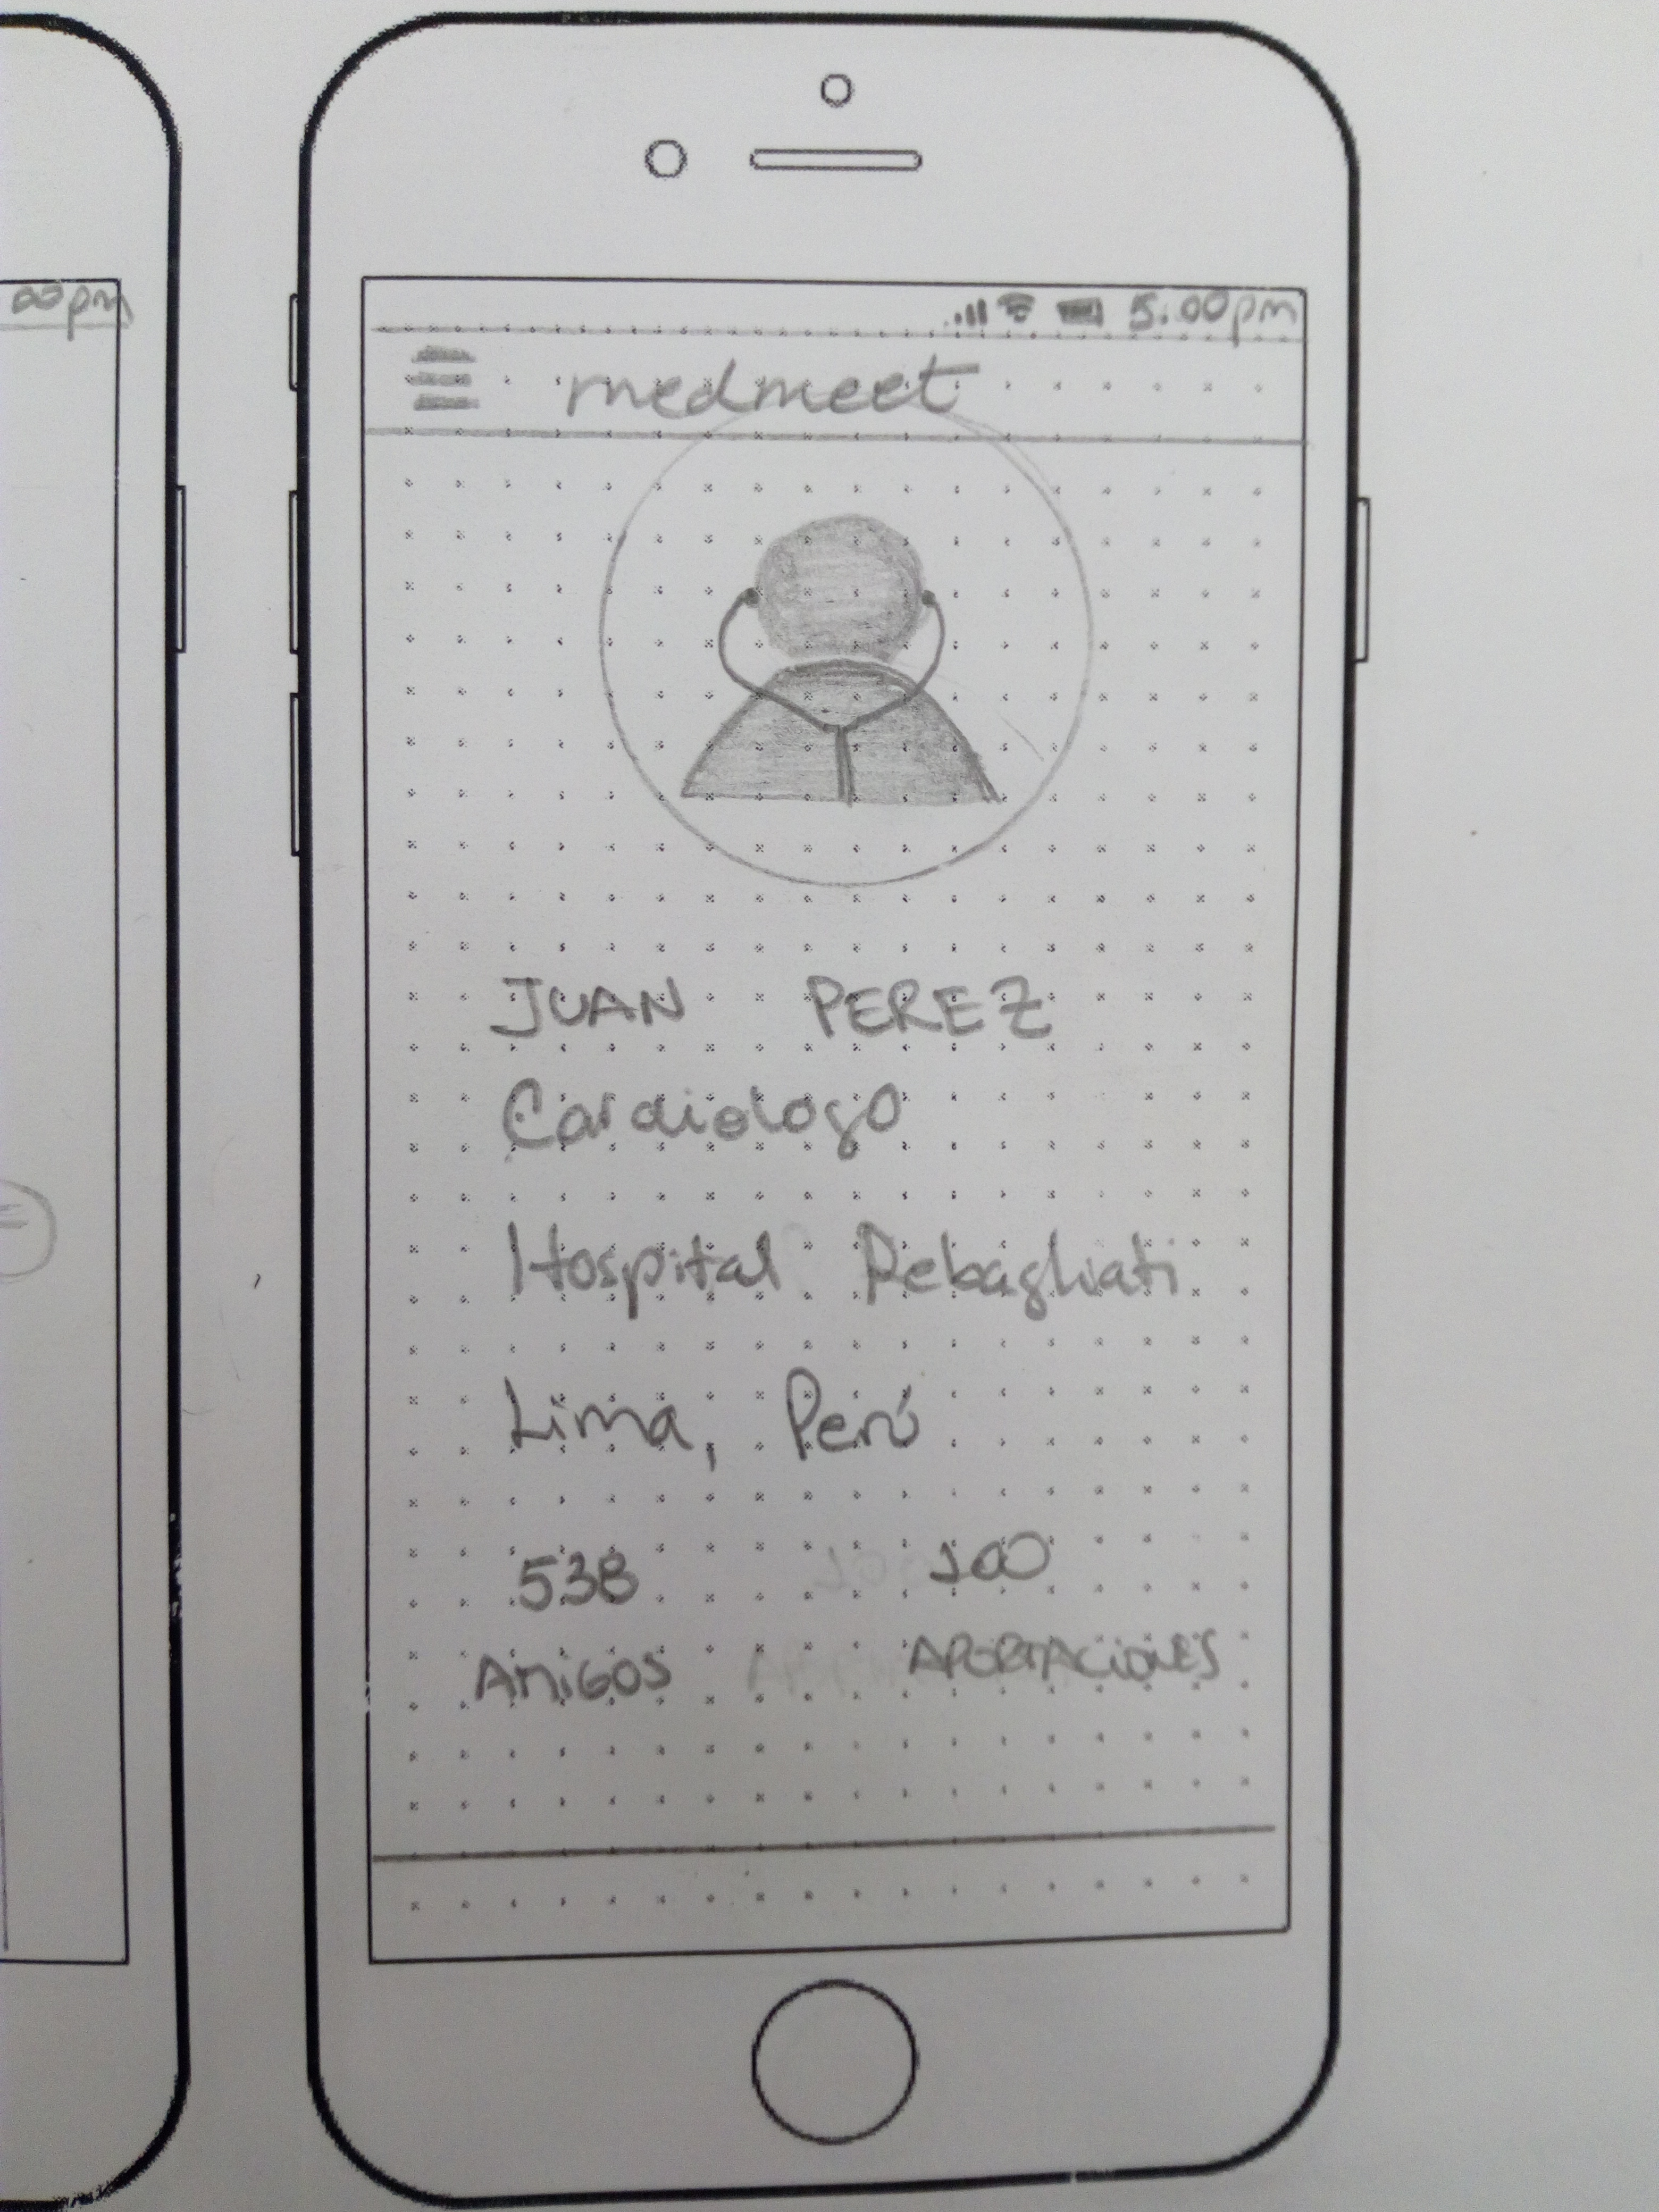 00pm
5:00pm
medmeet
JUAN PEREZ
Cardiologo
Hospital Rebagliati
Lima, Perú
538 100
AMIGOS APORTACIONES